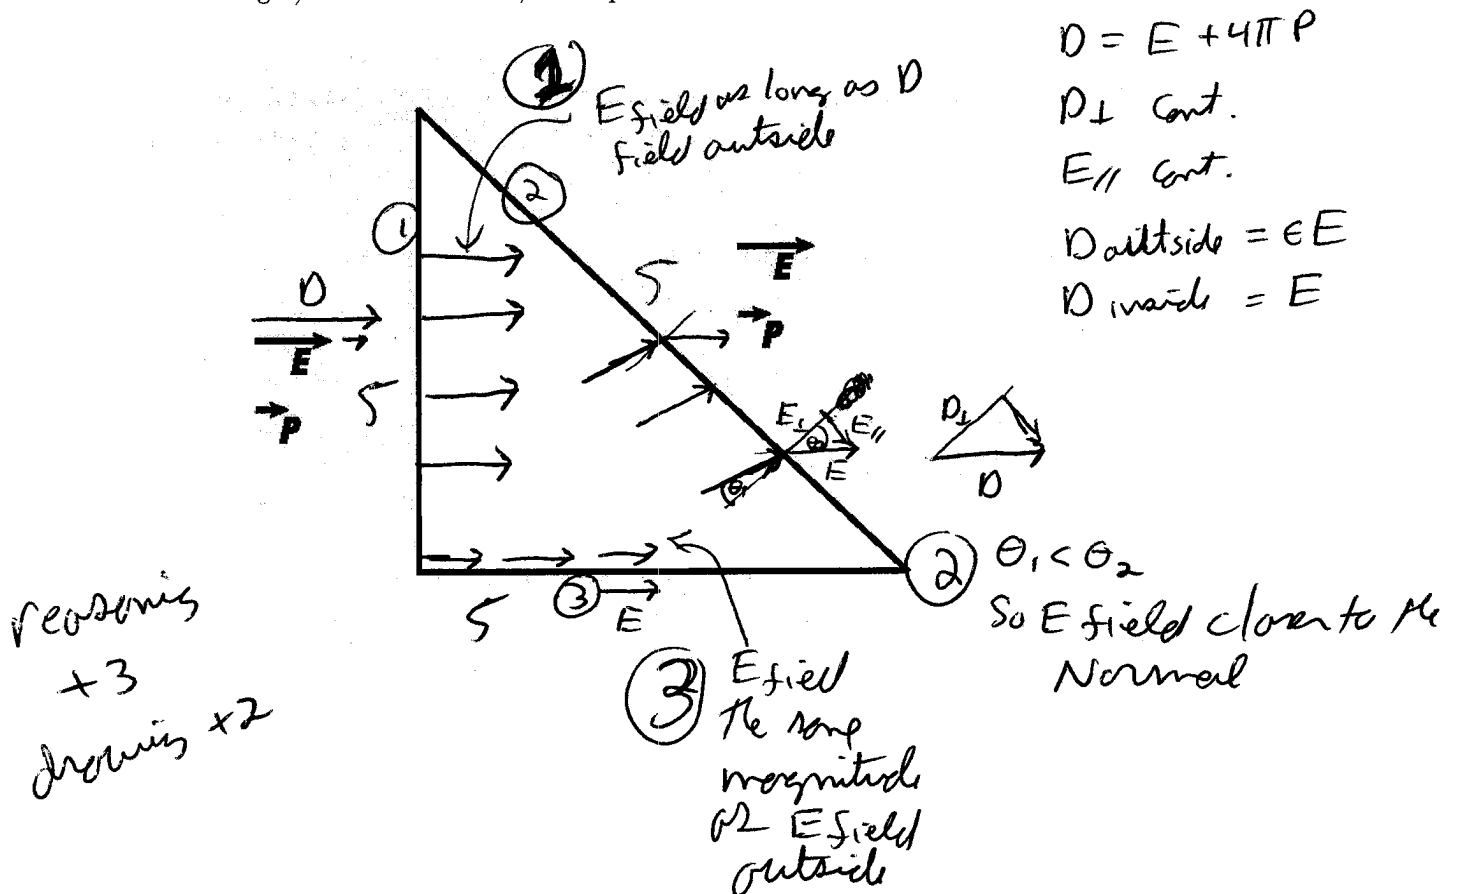 D = E + 4πP
D⊥ cont.
E// cont.
D outside = ϵE
D inside = E
1
E field as long as D
field outside
2
1
D
E
P
5
5
E
P
E⊥
E//
θ
E
θ₁
D⊥
D
2
θ₁ < θ₂
So E field closer to the
Normal
5
3
E
3
E field
the same
magnitude
as E field
outside
reasoning
+3
drawing +2